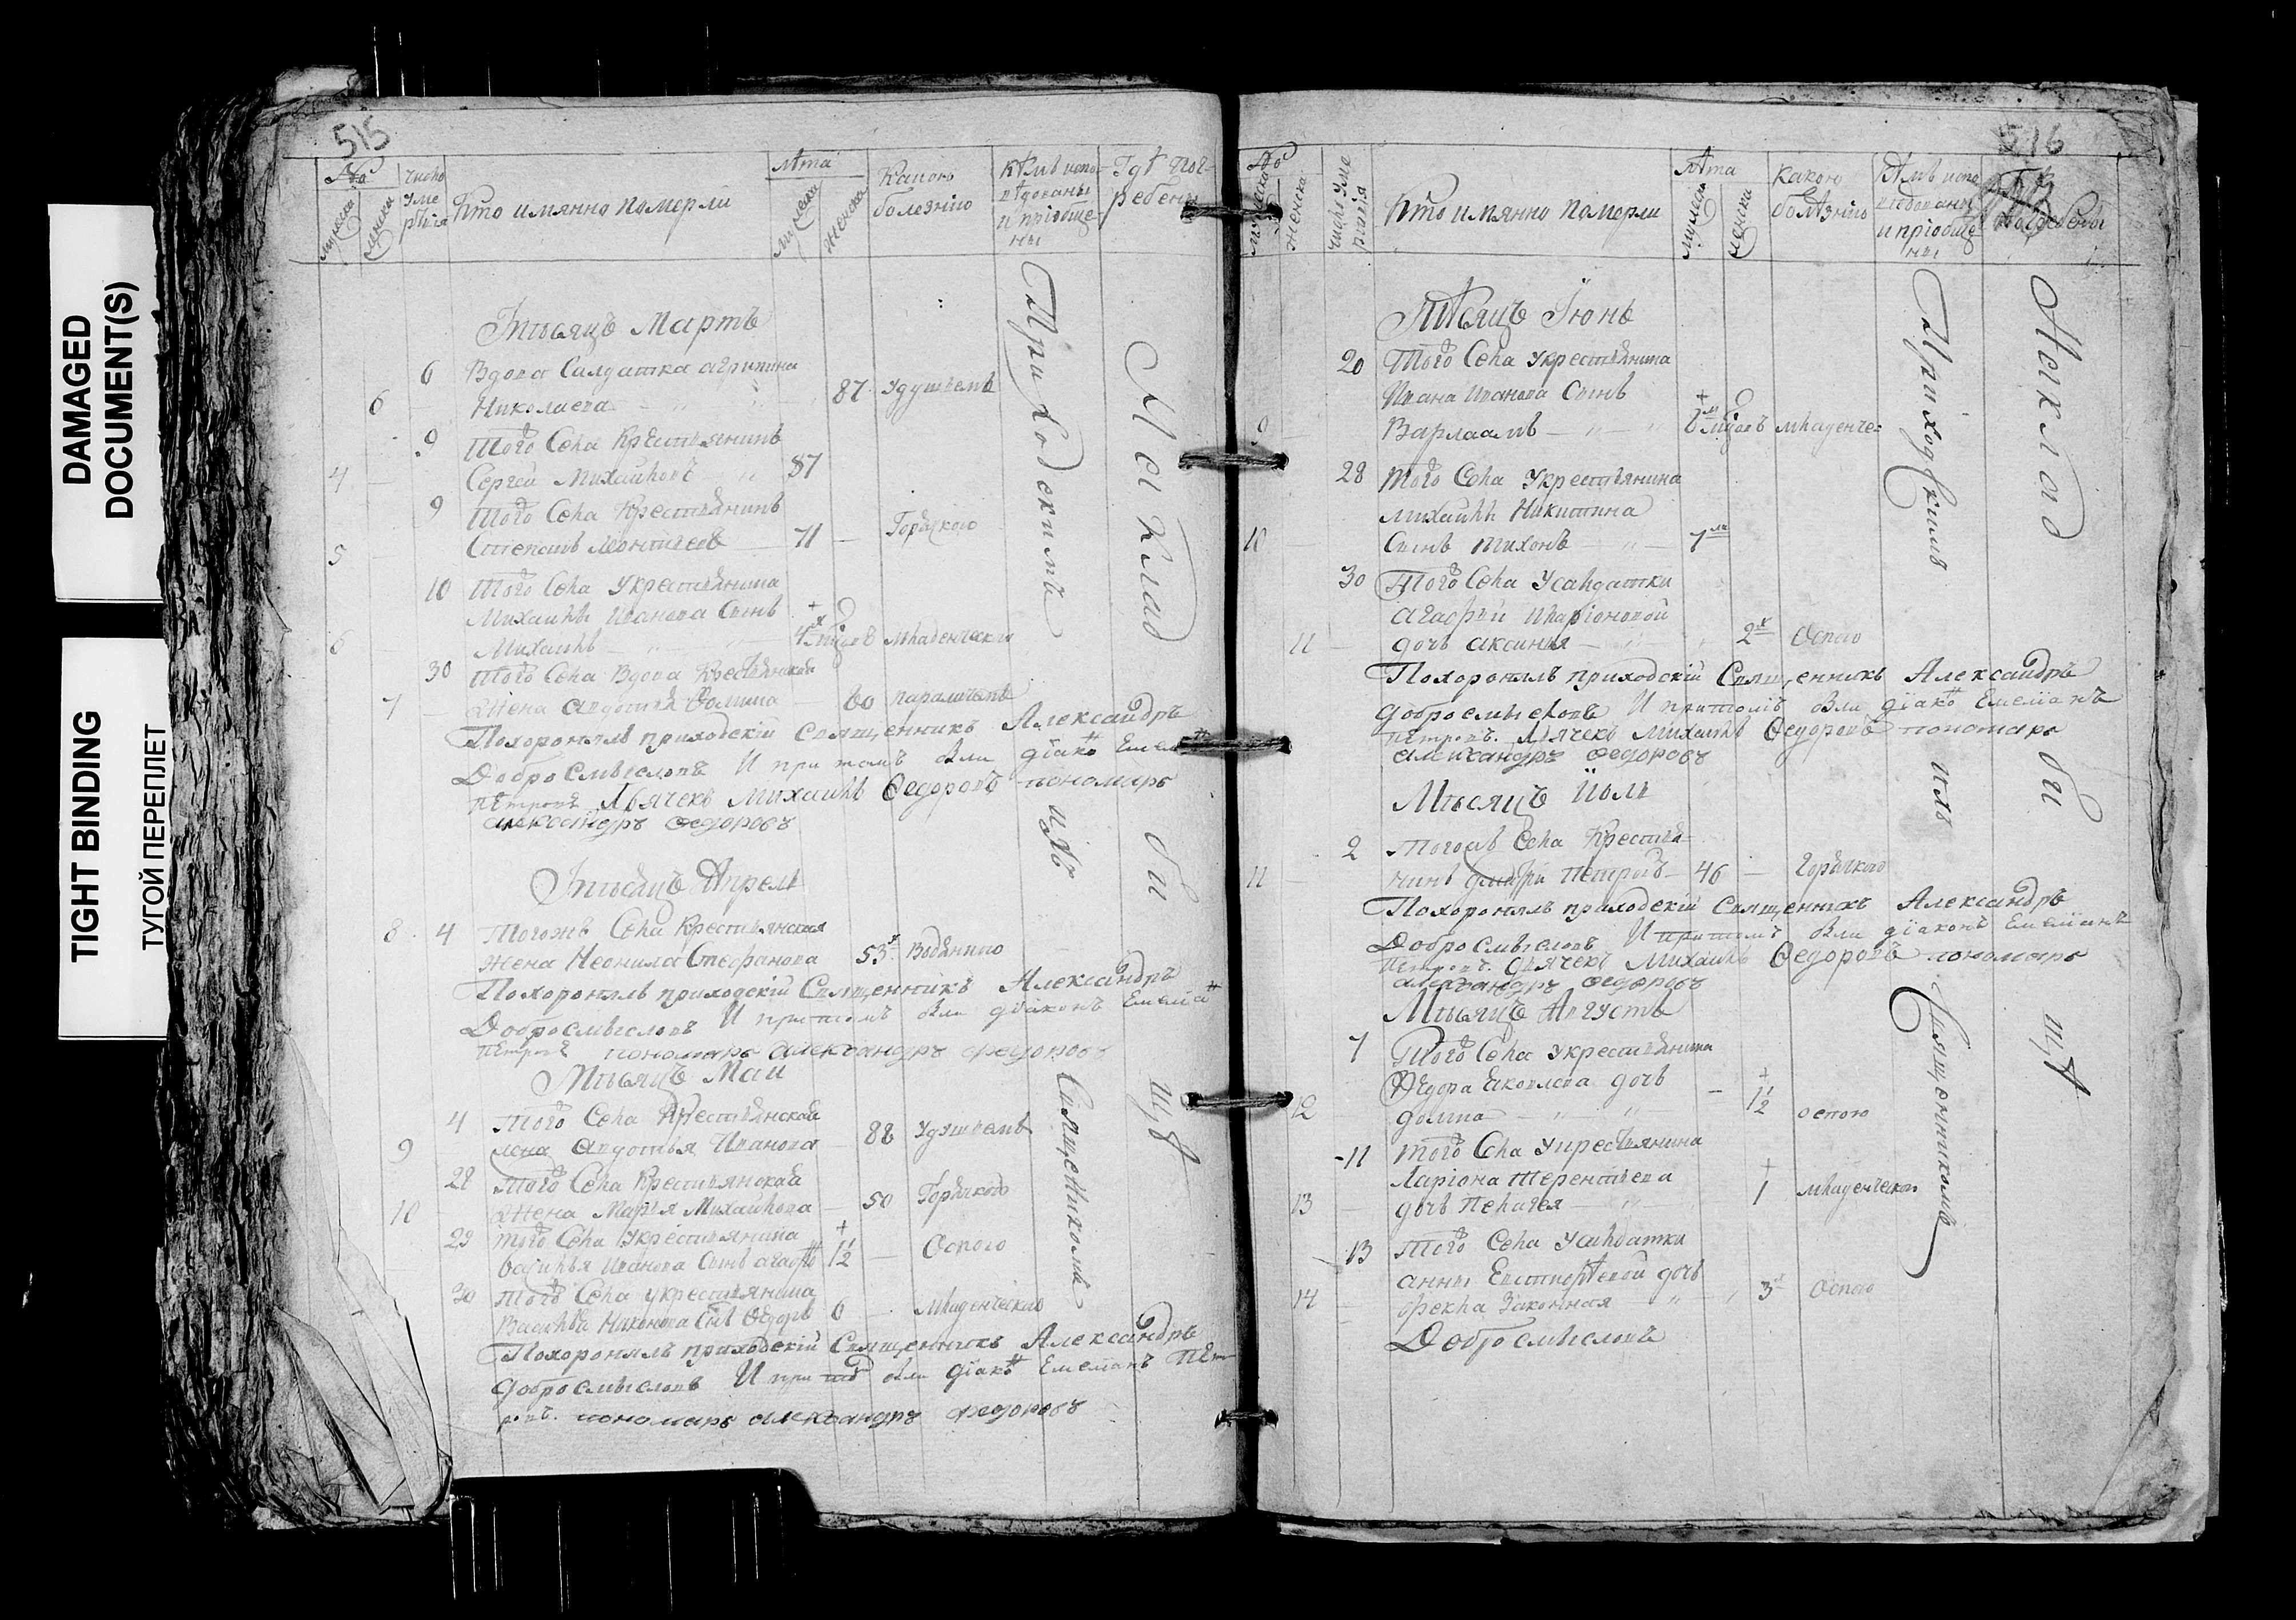 DAMAGED
DOCUMENT(S)
TIGHT BINDING
ТУГОЙ ПЕРЕПЛЕТ
515
№
мужеска
женска
число
уме
ршія
Кто имянно померли
лѣта
мужеска
женска
Какою
болезнію
кѣмъ испо-
вѣдованы
и пріобще-
ны
Гдѣ пог-
ребены
Мѣсяцъ Мартъ
6 Вдова Салдатка агрипина
6 Николаева 87 удушьемъ
9 Того Села Крестьянинъ
4 Сергей Михайловъ 87
9 Того Села Крестьянинъ
5 Степанъ Леонтьевъ 71 Горячкою
10 Того Села Укрестьянина
Михайлы Иванова Сынъ
6 Михайлъ 4х младенческою
30 Того Села Вдова Крестьянская
7 Жена Авдотья Фомина 60 параличемъ
Похоронялъ приходскій Священникъ Александръ
Добросмысловъ И притомъ были діаконъ
Петровъ Дьячекъ Михайлъ Ѳедоровъ пономарь
александръ ѳедоровъ
Мѣсяцъ Апрель
8 4 Тогожъ Села Крестьянская
жена Неонила Стефанова 53 Водянкою
Похоронялъ приходскій Священникъ Александръ
Добросмысловъ И притомъ были діаконъ Емеліанъ
Петровъ пономарь александръ федоровъ
Мѣсяцъ Маи
4 Того Села Крестьянская
9 жена Авдотья Иванова 88 Удушьемъ
28 Того Села Крестьянская
10 Жена Марья Михайлова 50 Горячкою
29 того Села Укрестьянина
Василья Иванова Сынъ 1 1/2 Оспою
30 Того Села укрестьянина
Василья Сынъ Ѳедоръ 6 Младенческою
Похоронялъ приходскій Священникъ Александръ
добросмысловъ И при томъ были діаконъ Емеліанъ Пет-
ровъ. пономарь александръ федоровъ
Приходскимъ
ихъ
Священникомъ
На Клад
би
щѣ
516
№
мужеска
женска
число уме
ршія
Кто имянно померли
лѣта
мужеска
женска
какою
болѣзнію
кѣмъ испо
вѣдованы
и пріобще-
ны
погребены
Мѣсяцъ Іюнь
20 Того Села Укрестьянина
Ивана Иванова Сынъ
9 Варлаамъ 6 младенче-
28 Того Села Укрестьянина
михайлы Никитина
10 Сынъ тихонъ 7
30 Того Села Усалдатки
агафьи иларіоновой
11 дочь аксинья 2 Оспою
Похоронялъ приходскій Священникъ Александръ
добросмысловъ И притомъ были діаконъ Емеліанъ
петровъ. Дьячекъ Михайлъ Ѳедоровъ пономарь
александръ ѳедоровъ
Мѣсяцъ Июль
2 Тогожъ Села Крестья-
11 нинъ Петровъ 46 Горячкою
Похоронялъ приходскій Священникъ Александръ
Добросмысловъ И притомъ были діаконъ Емеліанъ
Петровъ. дьячекъ Михайлъ Ѳедоровъ пономарь
александръ ѳедоровъ
Мѣсяцъ Августъ
7 Того Села укрестьянина
Ѳедора Яковлева дочь
12 домна 1 1/2 оспою
11 того Села Укрестьянина
Ларіона Терентьева
13 дочь Пелагея 1 младенческою
13 Того Села Усалдатки
анны дочь
14 фекла Законная 3 Оспою
Добросмысловъ
Приходскимъ
ихъ
Священникомъ
На клад
би
щѣ